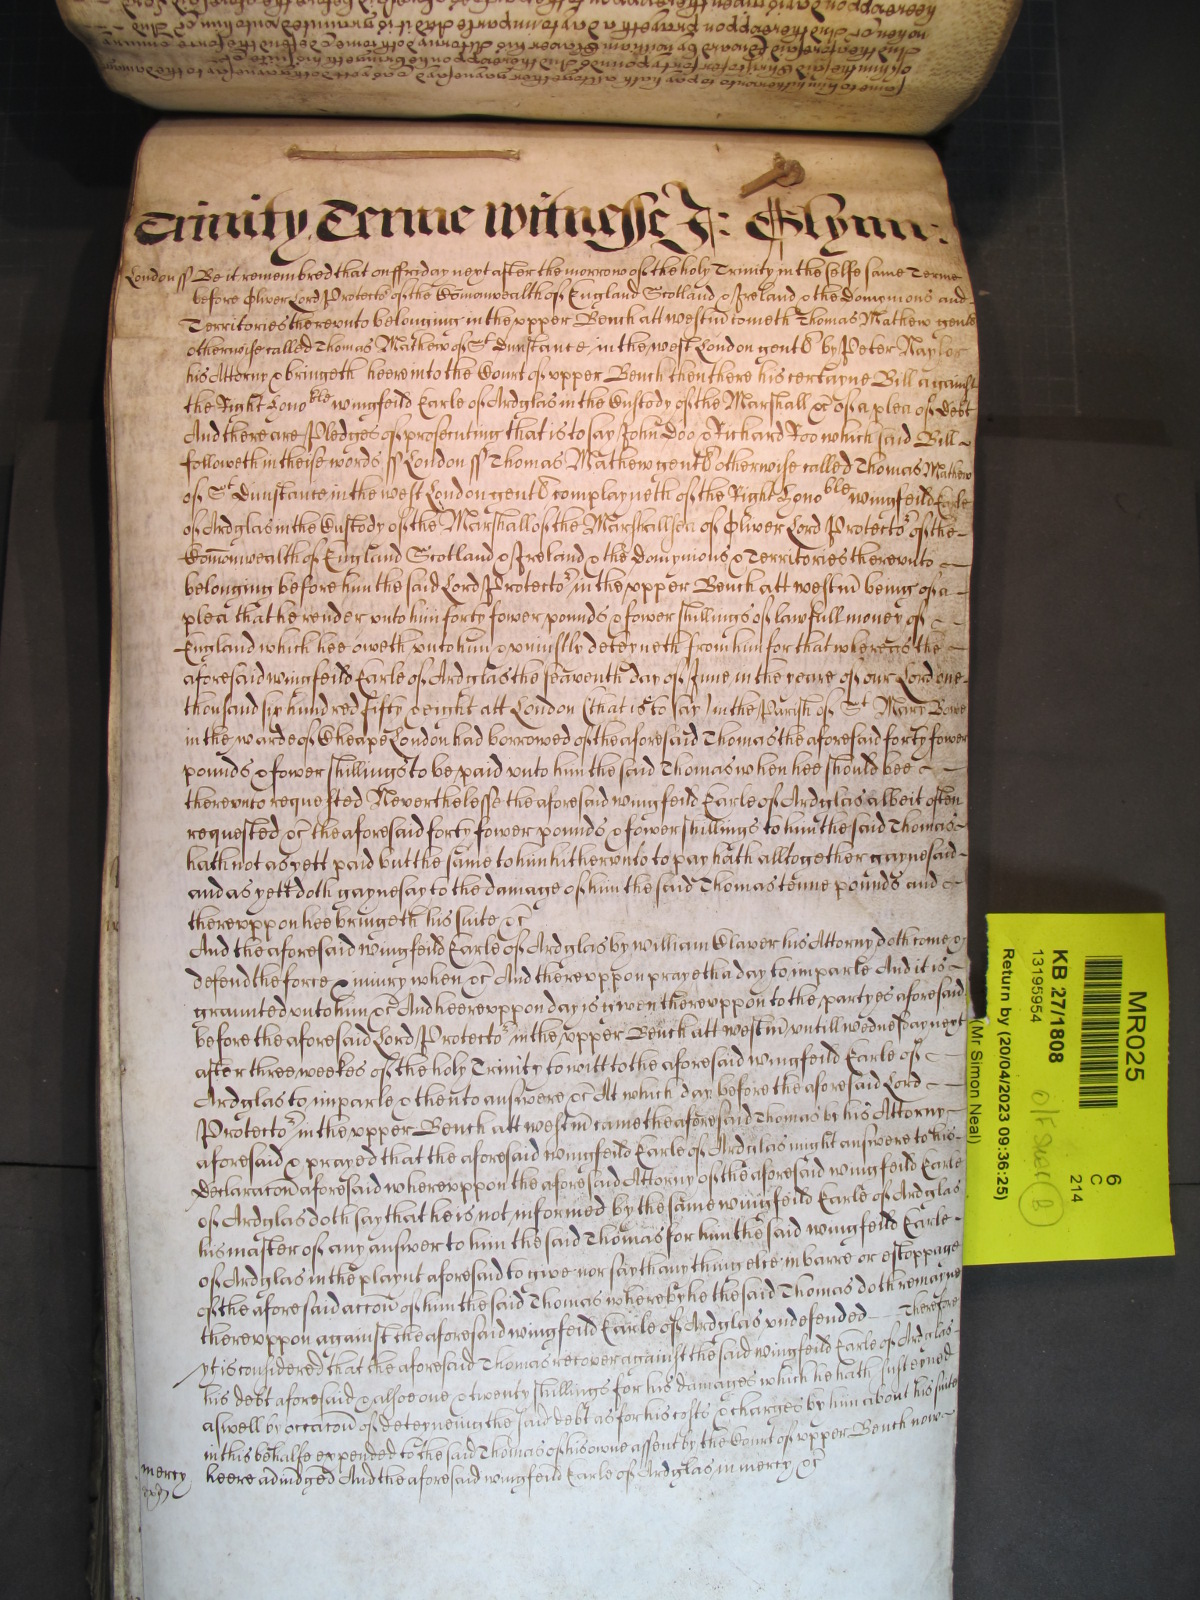 Trinity Terme witnesse J: Glynn:
London ss Be it remembred that on ffryday next after the morrow of the holy Trinity in the selfe same Terme
before Oliver Lord Protector of the Comonwealth of England Scotland & Ireland & the Dominions and
Territories therevnto belonging in the vpper Bench att westm cometh Thomas Mathew gent
otherwise called Thomas Mathew of St Dunstance in the west London gent by Peter Naylor
his Attorny & bringeth heere into the Court of vpper Bench then there his certayne Bill against
the Right honoble wingfeild Earle of Ardglas in the Custody of the Marshall &c of a plea of debt
And there are Pledges of prosecuting that is to say John Doo & Richard Roo which said Bill
followeth in theise words ss London ss Thomas Mathew gent otherwise called Thomas Mathew
of St Dunstance in the west London gent complayneth of the Right honoble wingfeild Earle
of Ardglas in the Custody of the Marshall of the Marshallsea of Oliver Lord Protector of the
Comonwealth of England Scotland & Ireland & the Dominyons & Territories therevnto
belonging before him the said Lord Protector in the vpper Bench att westm being of a
plea that he render vnto him forty fower pounds & fower shillings of lawfull money of
England which hee oweth vnto him & vniustly deteyneth from him for that whereas the
aforesaid wingfeild Earle of Ardglas the seaventh day of June in the yeare of our Lord one
thousand six hundred fifty & eight att London (that is to say) in the Parish of St Mary Bowe
in the warde of Cheape London had borrowed of the aforesaid Thomas the aforesaid forty fower
pounds & fower shillings to be paid vnto him the said Thomas when hee should bee
therevnto requested Neverthelesse the aforesaid wingfeild Earle of Ardglas albeit often
requested &c the aforesaid forty fower pounds & fower shillings to him the said Thomas
hath not as yett paid but the same to him hithervnto to pay hath alltogether gaynesaid
and as yett doth gaynesay to the damage of him the said Thomas tenne pounds and
therevppon hee bringeth his suite &c
And the aforesaid wingfeild Earle of Ardglas by william Claver his Attorny doth come &
defend the force & iniury when &c And therevppon prayeth a day to imparle And it is
graunted vnto him &c And heerevppon day is given therevppon to the partyes aforesaid
before the aforesaid Lord Protector in the vpper Bench att westm vntill wednesday next
after three weekes of the holy Trinity to witt to the aforesaid wingfeild Earle of
Ardglas to imparle & then to answere &c At which day before the aforesaid Lord
Protector in the vpper Bench att westm came the aforesaid Thomas by his Attorny
aforesaid & prayed that the aforesaid wingfeild Earle of Ardglas might answere to his
Declaracon aforesaid wherevppon the aforesaid Attorny of the aforesaid wingfeild Earle
of Ardglas doth say that he is not informed by the same wingfeild Earle of Ardglas
his master of any answer to him the said Thomas for him the said wingfeild Earle
of Ardglas in the playnt aforesaid to give nor sayth any thing else in barre or estoppage
of the aforesaid accon of him the said Thomas whereby he the said Thomas doth remayne
therevppon against the aforesaid wingfeild Earle of Ardglas vndefended Therefore
yt is considered that the aforesaid Thomas recover against the said wingfeild Earle of Ardglas
his debt aforesaid & alsoe one & twenty shillings for his damages which he hath susteyned
aswell by occacon of deteyneing the said debt as for his costs & charges by him about his suite
in this behalfe expended to the said Thomas of his owne assent by the Court of vpper Bench now
heere adiudged And the aforesaid wingfeild Earle of Ardglas in mercy &c
mercy
MR025
6
C
214
KB 27/1808
13195954
Return by (20/04/2023 09:36:25)
(Mr Simon Neal)